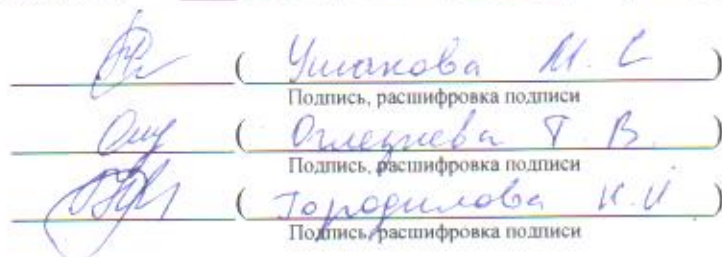 ( Ушакова М. С )
Подпись, расшифровка подписи
( Оглезнева Т В. )
Подпись, расшифровка подписи
( Городилова Н. И )
Подпись, расшифровка подписи